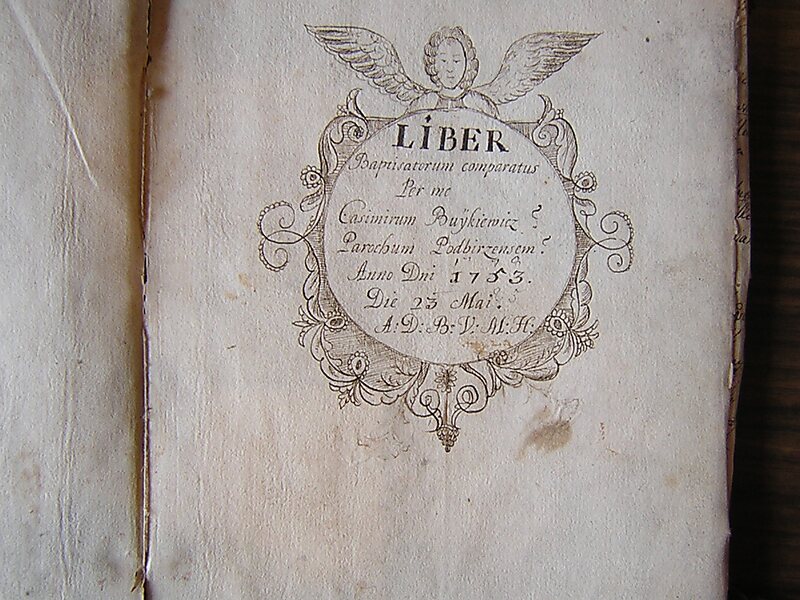 LİBER
Baptisatorum comparatus
Per me
Casimirum Buÿkiewicz
Parochum Podbirzensem
Anno Dni 1753.
Die 23 Mai.
A: D: B: V: M: H: